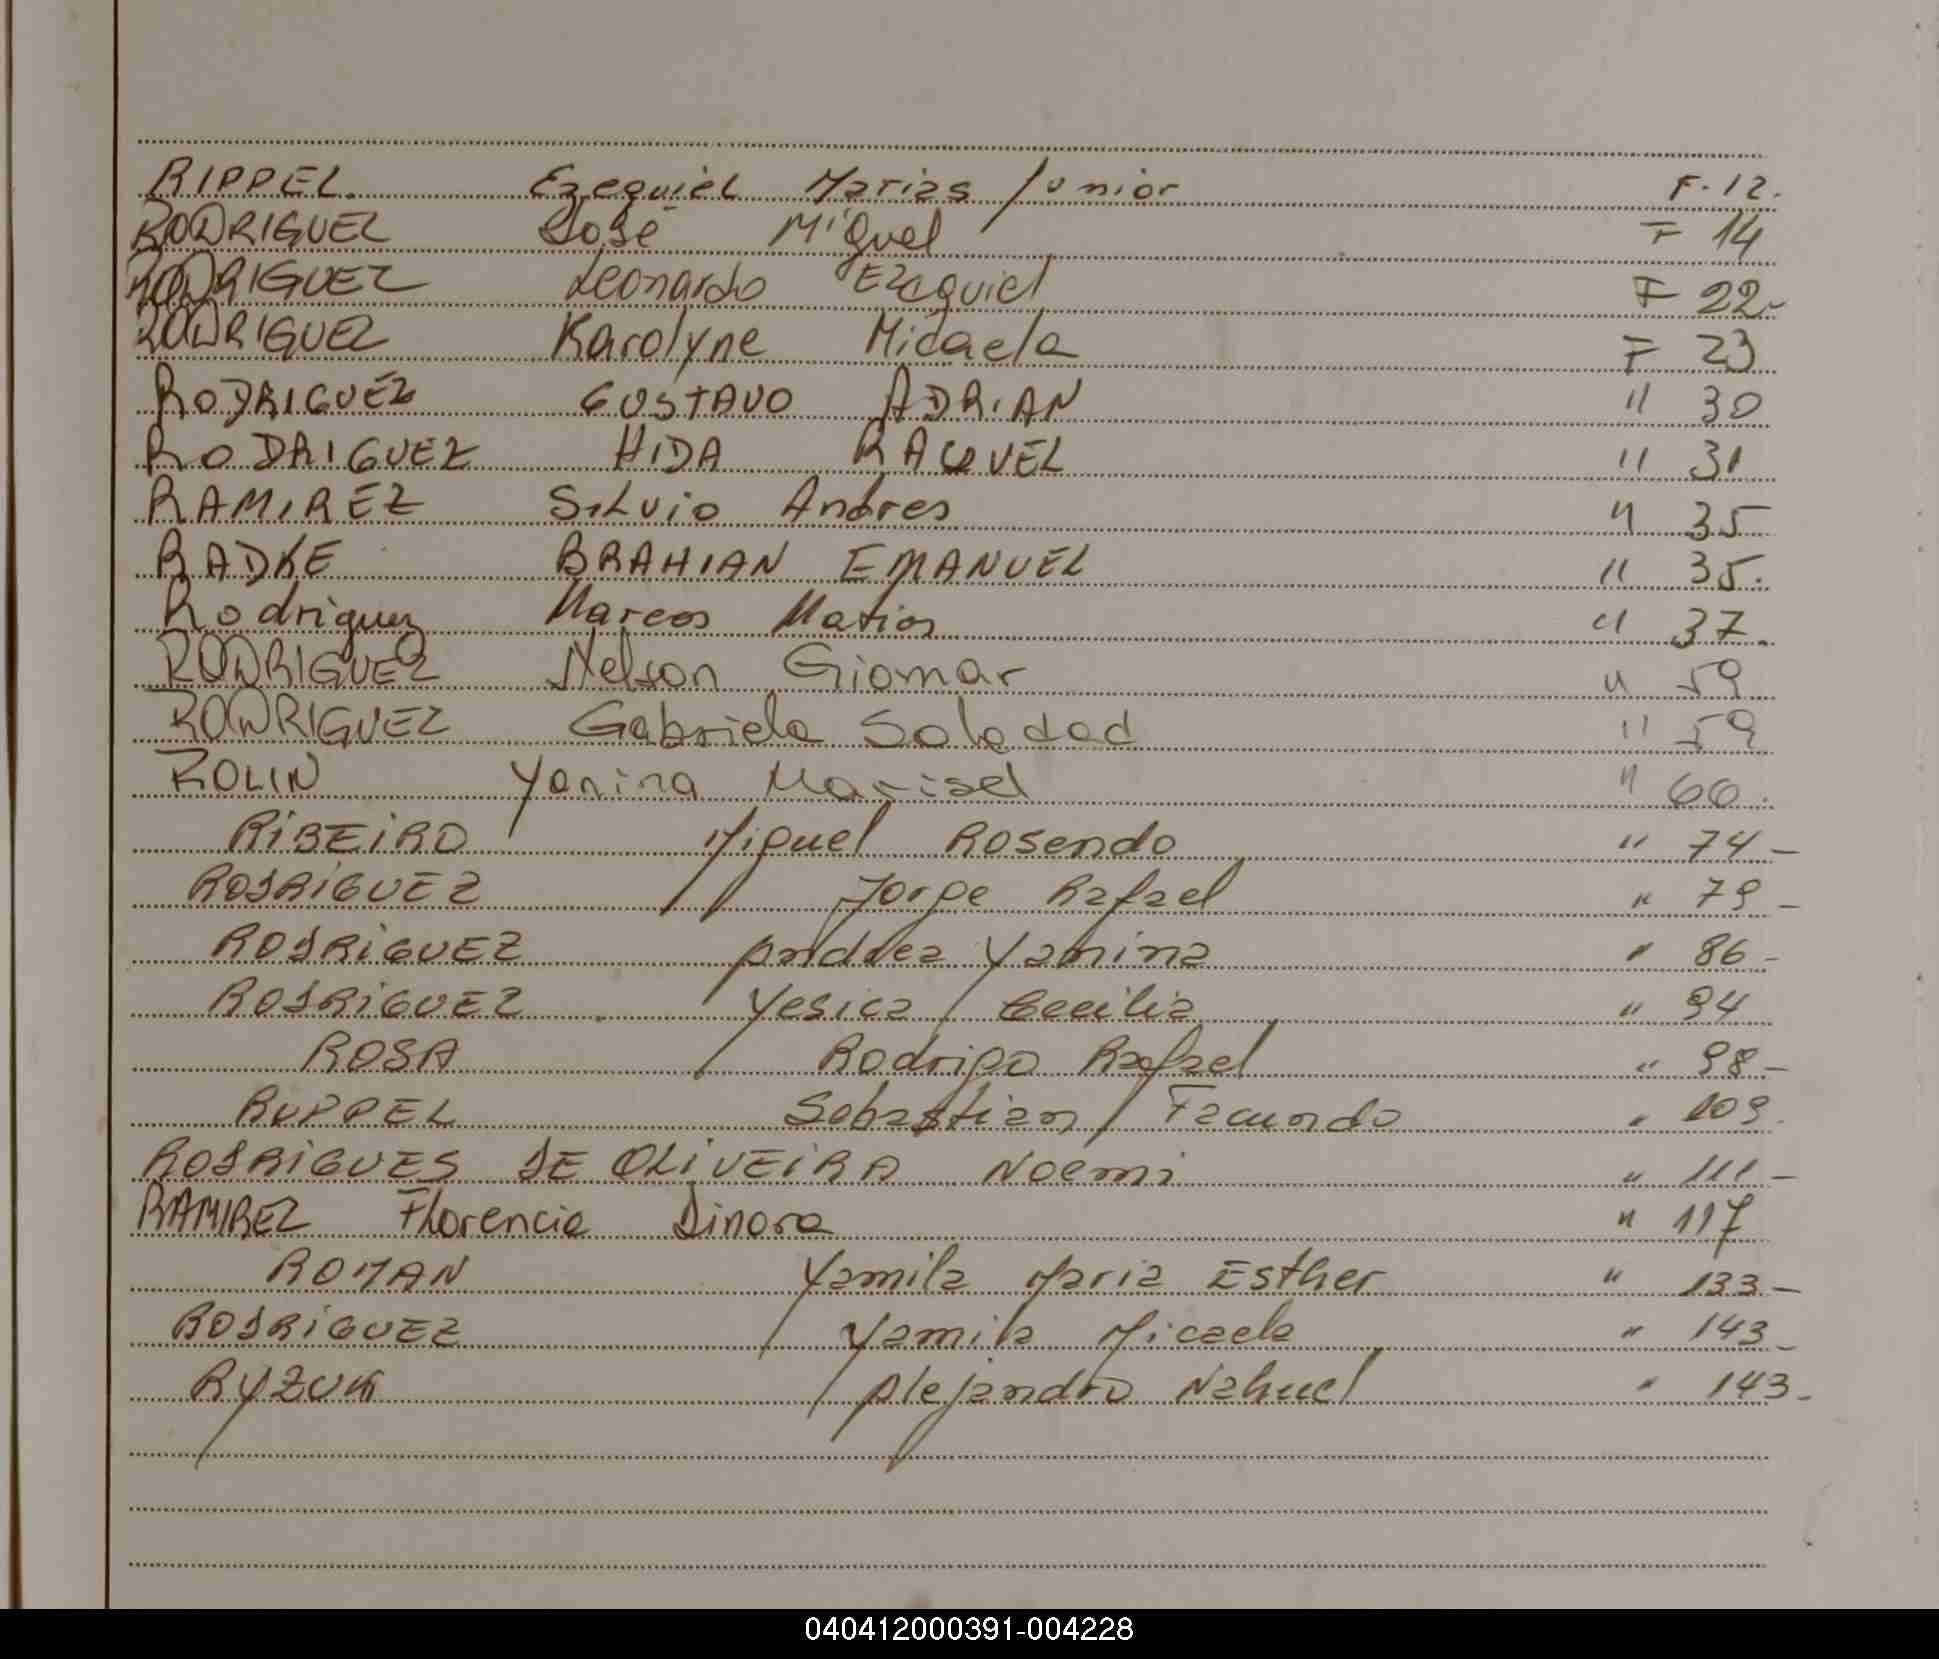 RIPPEL. Ezequiel Matias Junior F. 12.
RODRIGUEZ José Miguel F 14
RODRIGUEZ Leonardo Ezequiel F 22-
RODRIGUEZ Karolyne Micaela F 23
RODRIGUEZ GUSTAVO ADRIAN " 30
RODRIGUEZ HIDA RAQUEL " 31
RAMIREZ Silvio Andres " 35
RADKE BRAHIAN EMANUEL " 35.
Rodriguez Marcos Matias " 37.
RODRIGUEZ Nelson Giomar " 59
RODRIGUEZ Gabriela Soledad " 59
ROLIN Yanina Marisel " 60.
RIBEIRO Miguel Rosendo " 74-
RODRIGUEZ Jorge Rafael " 79-
RODRIGUEZ Andrea Yanina " 86-
RODRIGUEZ Yesica Cecilia " 94
ROSA Rodrigo Rafael " 98-
RUPPEL Sebastian Facundo " 109.
RODRIGUES DE OLIVEIRA Noemi " 111-
RAMIREZ Florencia Dinora " 117
ROMAN Yamila Maria Esther " 133-
RODRIGUEZ Yamila Micaela " 143-
RYZUK Alejandro Nahuel " 143-
040412000391-004228